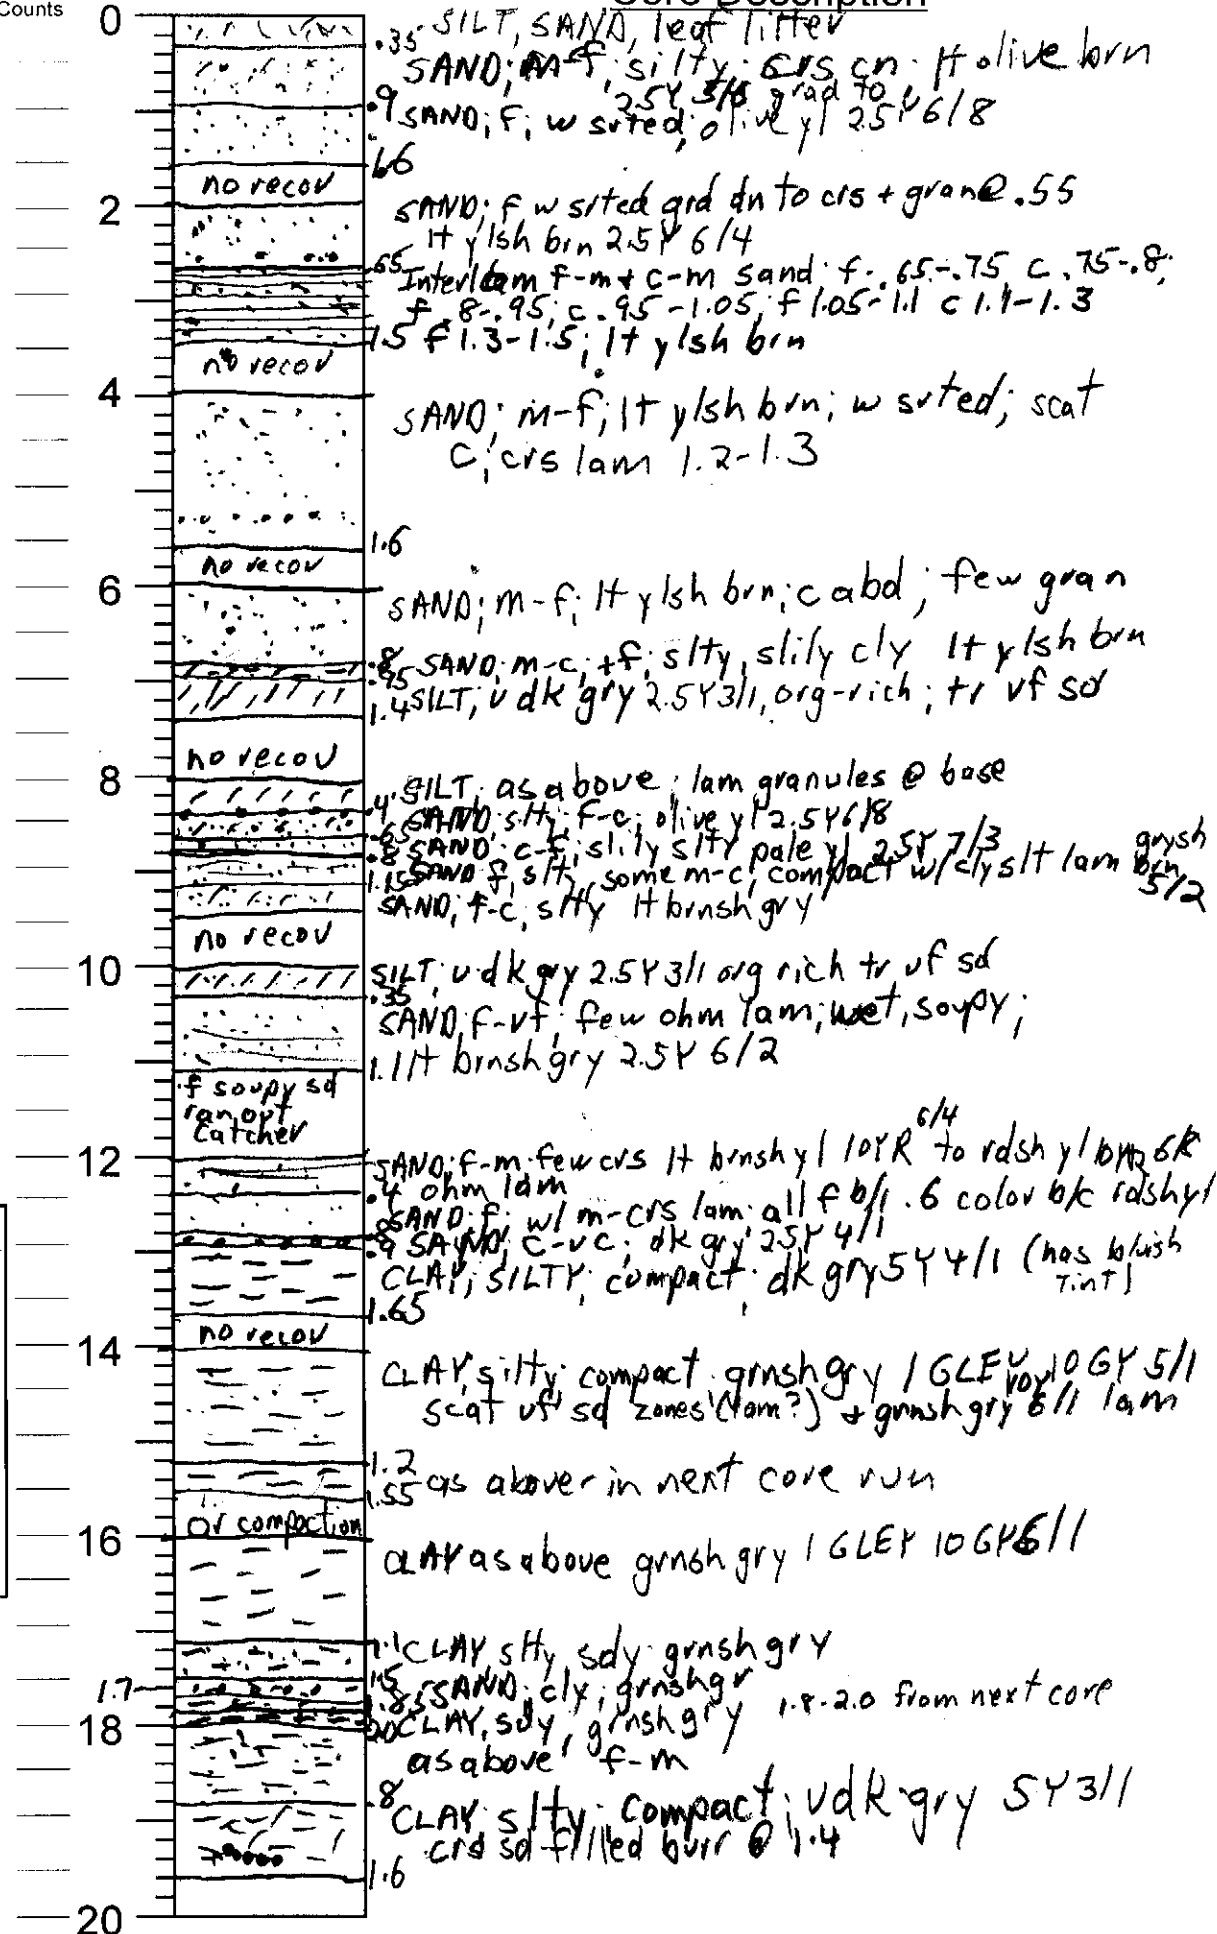 Counts
Core Description
0
SILT, SAND, leaf litter
.35
SAND; m-f; silty; crs cn. lt olive brn
2.5Y 5/6 grad to
.9
SAND; f; w srted; olive yl 2.5Y6/8
1.6
no recov
2
SAND; f w srted grd dn to crs + gran @ .55
lt ylsh brn 2.5Y 6/4
.65
Interlam f-m + c-m sand: f .65-.75 c .75-.8;
f .8-.95; c .95-1.05; f 1.05-1.1 c 1.1-1.3
1.5 f 1.3-1.5; lt ylsh brn
no recov
4
SAND; m-f; lt ylsh brn; w srted; scat
c; crs lam 1.2-1.3
1.6
no recov
6
SAND; m-f; lt ylsh brn; c abd; few gran
.8 SAND; m-c; +f; slty, slily cly lt ylsh brn
.95
1.4 SILT; v dk gry 2.5Y3/1, org-rich; tr vf sd
no recov
8
SILT; as above; lam granules @ base
.4 SAND; slty; f-c; olive yl 2.5Y6/8
.65
.8 SAND; c-f; slily slty pale yl 2.5Y 7/3
1.15 SAND f, slty, some m-c, compact w/ cly slt lam grysh brn 5/2
SAND; f-c, slty lt brnsh gry
no recov
10
SILT; v dk gry 2.5Y3/1 org rich tr vf sd
.35
SAND; f-vf; few ohm lam; wet, soupy;
1.1 lt brnsh gry 2.5Y 6/2
f soupy sd
ran out
catcher
12
SAND; f-m; few crs lt brnsh yl 10YR 6/4 to rdsh yl 6/8
.4 ohm lam
SAND f; w/ m-crs lam; all f b/l .6 color b/c rdsh yl
.8
.9 SAND; c-vc; dk gry 2.5Y 4/1
CLAY; SILTY; compact; dk gry 5Y 4/1 (has bluish
TinT)
1.65
no recov
14
CLAY, silty; compact grnsh gry 1 GLEY 10GY 5/1
scat vf sd zones (lam?) + grnsh gry 6/1 lam
1.2
1.55 as above in next core run
or compaction
16
CLAY as above grnsh gry 1 GLEY 10GY6/1
1.1 CLAY slty sdy grnsh gry
1.5
1.7
1.85 SAND; cly; grnsh gr
1.8-2.0 from next core
2.0 CLAY, sdy, grnsh gry
18
as above f-m
.8
CLAY; slty; compact; vdk gry 5Y3/1
crs sd filled burr @ 1.4
1.6
20